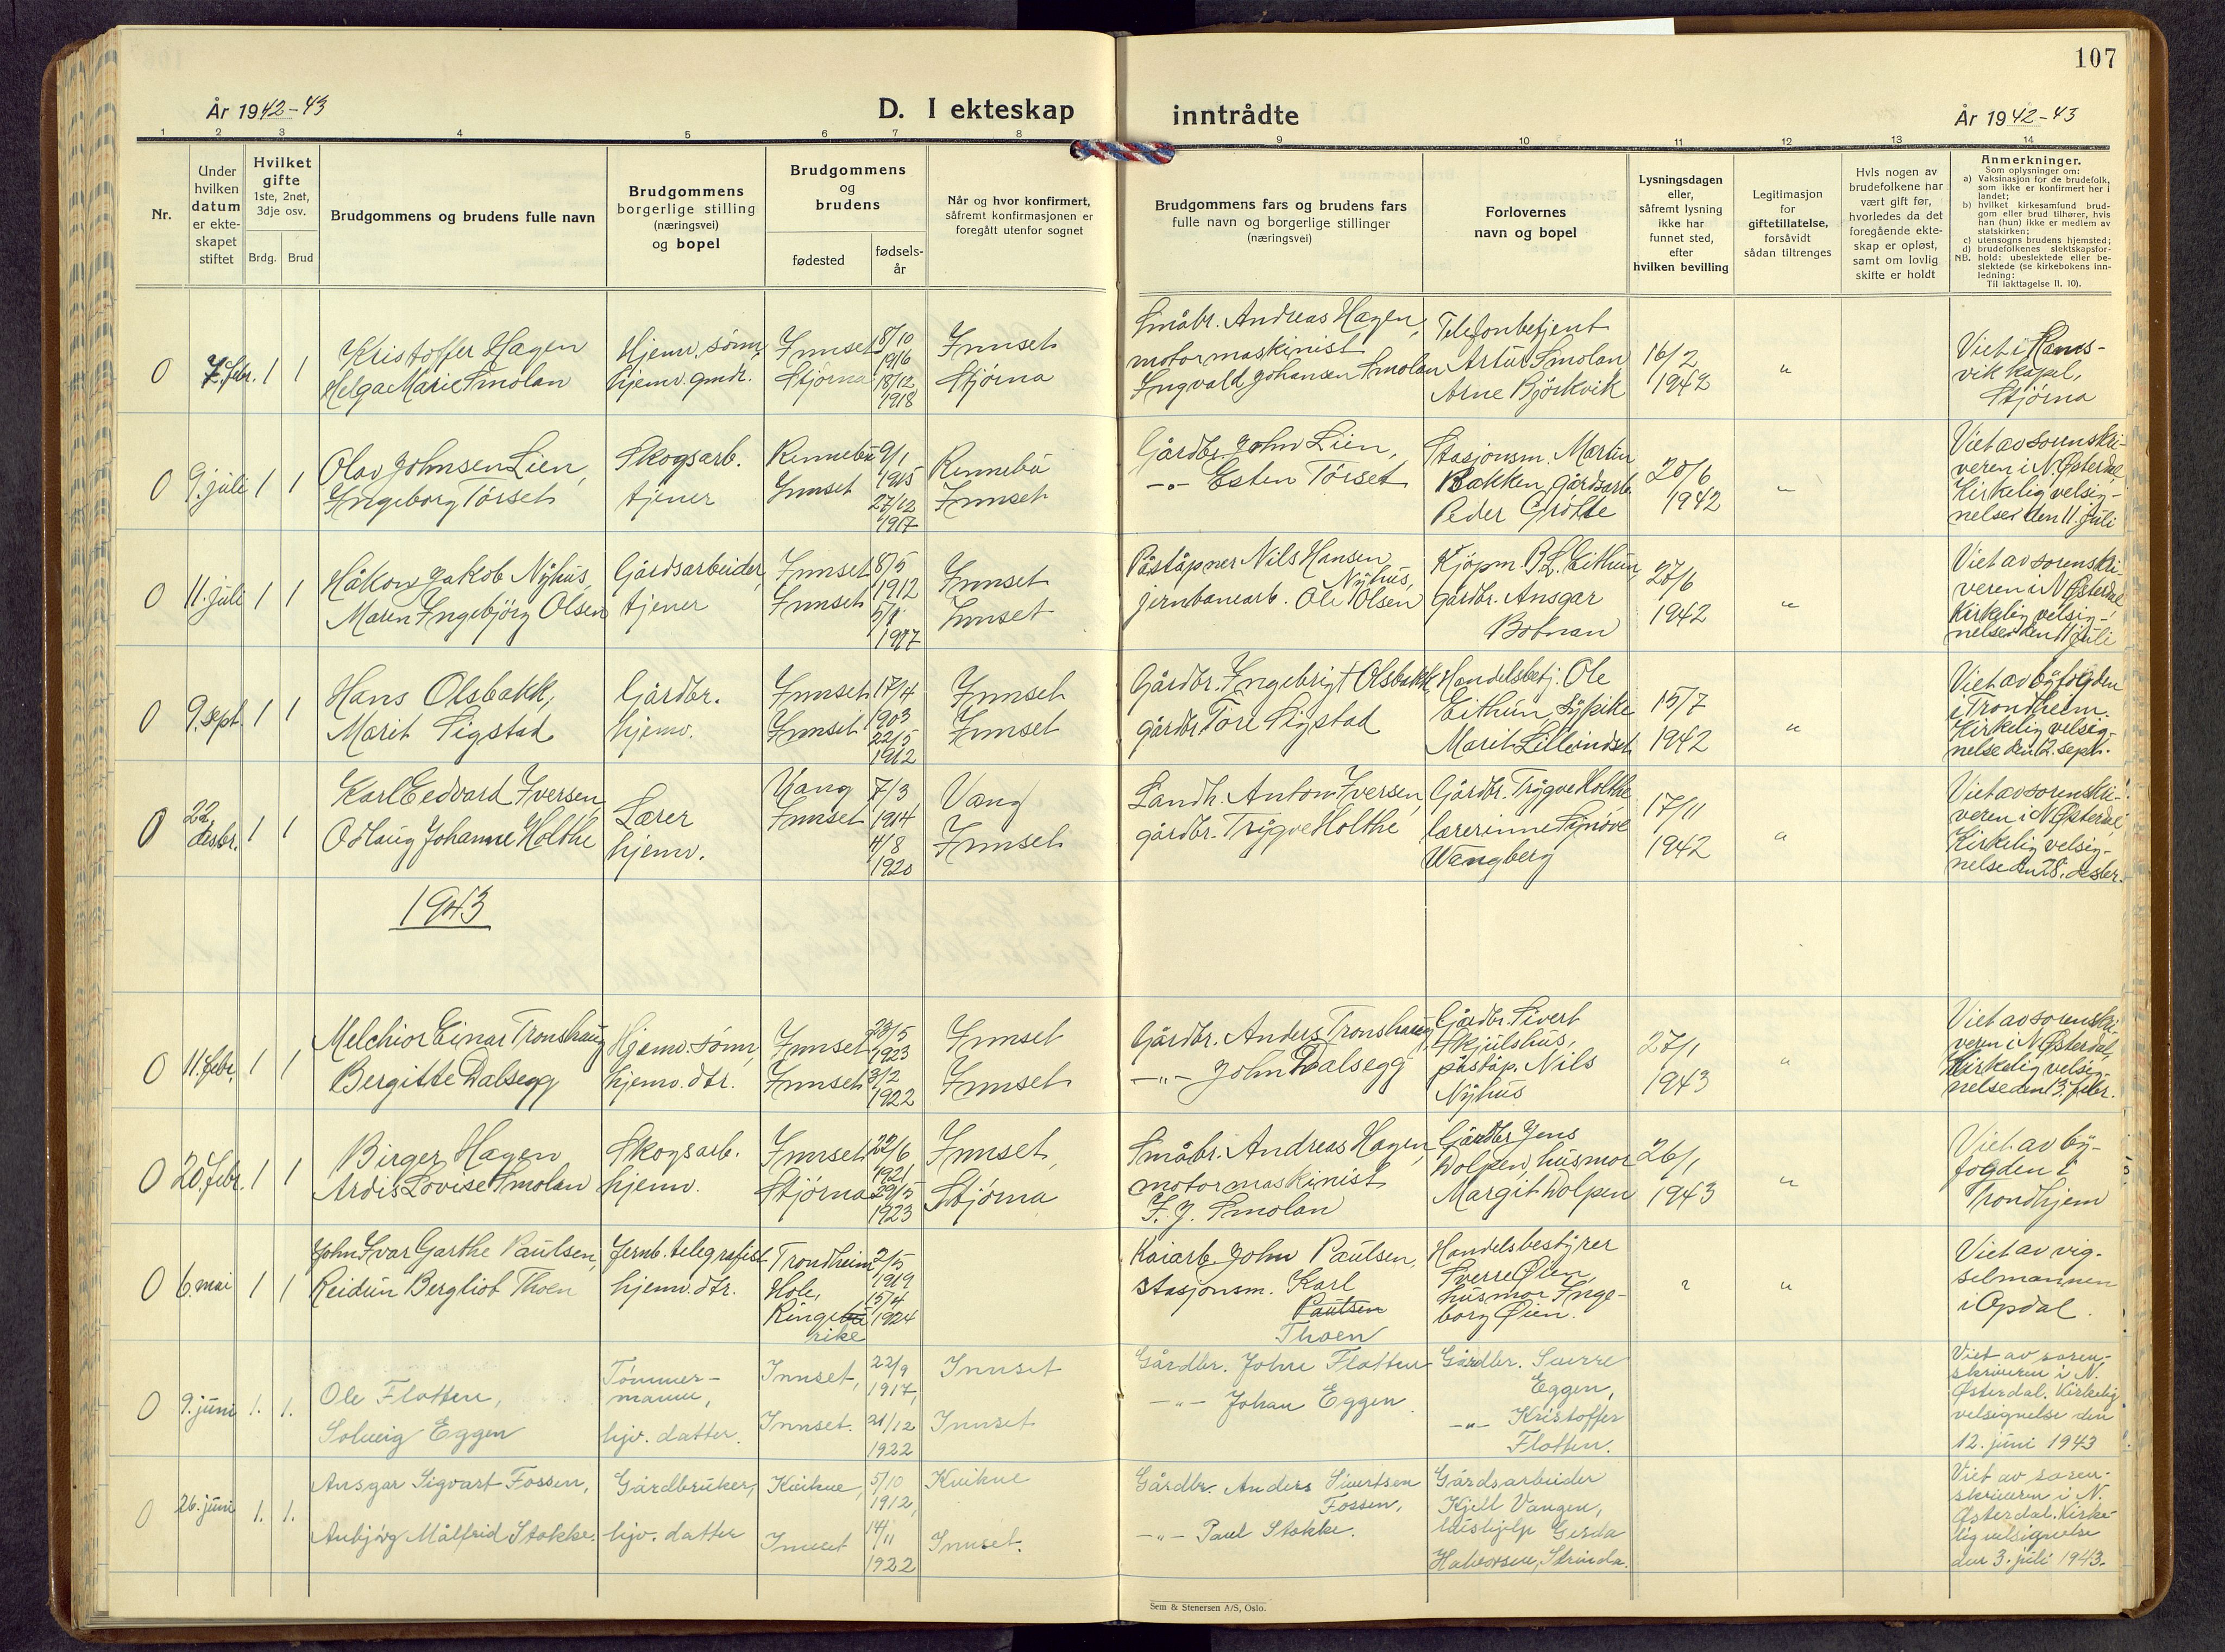 107
År 1942-43
D. I ekteskap
inntrådte
År 1942-43
1 2 3 4 5 6 7 8 9 10 11 12 13 14
Nr.
Under
hvilken
datum
er ekte-
skapet
stiftet
Hvilket
gifte
1ste, 2net,
3dje osv.
Brdg.
Brud
Brudgommens og brudens fulle navn
Brudgommens
borgerlige stilling
(næringsvei)
og bopel
Brudgommens
og
brudens
fødested
fødsels-
år
Når og hvor konfirmert,
såfremt konfirmasjonen er
foregått utenfor sognet
Brudgommens fars og brudens fars
fulle navn og borgerlige stillinger
(næringsvei)
Forlovernes
navn og bopel
Lysningsdagen
eller,
såfremt lysning
ikke har
funnet sted,
efter
hvilken bevilling
Legitimasjon
for
giftetillatelse,
forsåvidt
sådan tiltrenges
Hvis nogen av
brudefolkene har
vært gift før,
hvorledes da det
foregående ekte-
skap er opløst,
samt om lovlig
skifte er holdt
Anmerkninger.
Som oplysninger om:
a) Vaksinasjon for de brudefolk,
som ikke er konfirmert her i
landet;
b) hvilket kirkesamfund brud-
gom eller brud tilhører, hvis
han (hun) ikke er medlem av
statskirken;
c) utensogns brudens hjemsted;
d) brudefolkenes slektskapsfor-
NB. hold: ubeslektede eller be-
slektede (se kirkebokens inn-
ledning:
Til Iakttagelse II. 10).
0 7. febr. 1 1
Kristoffer Hagen
Helga Marie Smolan
Hjemv. sønn,
hjemv. gmdr.
Innset
Stjørna
8/10
1916
18/12
1918
Innset
Stjørna
Småbr. Andreas Hagen,
motormaskinist
Ingvald Johansen Smolan
Telefonbetjent
Artur Smolan
Arne Bjørkvik
16/2
1942
"
Viet i Hams-
vik kapel,
Stjørna
0 9. juli 1 1
Olav Johnsen Lien,
Ingeborg Tørset
Skogsarb.
tjener
Rennebu
Innset
9/1
1915
27/12
1917
Rennebu
Innset
Gårdbr. John Lien,
-"- Esten Tørset
Stasjonsm. Martin
Bakken, gårdsarb.
Peder Grøtte
20/6
1942
"
Viet av sorenskri-
veren i N. Østerdal,
Kirkelig velsig-
nelse den 11. juli
0 11. juli 1 1
Håkon Jakob Nyhus,
Maren Ingebjörg Olsen
Gårdsarbeider,
tjener
Innset
Innset
8/5
1912
5/8
1917
Innset
Innset
Påståpner Nils Hansen
Nyhus,
jernbanearb. Ole Olsen
Kjøpm. P. L. Eithun,
gårdbr. Ansgar
Botnan
20/6
1942
"
Viet av sorenskri-
veren i N. Østerdal,
Kirkelig velsig-
nelse den 11. juli
0 9. sept. 1 1
Hans Olsbakk,
Marit Sigstad
Gårdbr.
hjemv.
Innset
Innset
17/4
1903
22/5
1912
Innset
Innset
Gårdbr. Ingebrigt Olsbakk,
gårdbr. Tore Sigstad
Handelsbetj. Ole
Eithun, sypike
Marit Lillvindset
15/7
1942
"
Viet av byfogden
i Trondheim.
Kirkelig velsig-
nelse den 12. sept.
0 22. desbr. 1 1
Karl Eedvard Iversen
Odlaug Johanne Holthe
Lærer
hjemv.
Vang
Innset
7/3
1914
4/8
1920
Vang
Innset
Landh. Anton Iversen,
gårdbr. Trygve Holthe
Gårdbr. Trygve Holthe,
lærerinne Synøve
Wangberg
17/11
1942
"
Viet av sorenskri-
veren i N. Østerdal,
Kirkelig velsig-
nelse den 28. desbr.
1943
0 11. febr. 1 1
Melchior Einar Tronshaug
Bergitte Dalsegg
Hjemv. sønn,
hjemv. dtr.
Innset
Innset
28/5
1923
3/2
1922
Innset
Innset
Gårdbr. Anders Tronshaug,
-"- John Dalsegg
Gårdbr. Sivert
Skjulshus,
påståp. Nils
Nyhus
27/1
1943
"
Viet av sorenskri-
veren i N. Østerdal,
Kirkelig velsig-
nelse den 13. febr.
0 20. febr. 1 1
Birger Hagen
Ardis Lovise Smolan
Skogsarb.
hjemv.
Innset
Stjørna
22/6
1921
29/5
1923
Innset,
Stjørna
Småbr. Andreas Hagen,
motormaskinist
I. J. Smolan
Gårdbr. Jens
Dolpen, husmor
Margit Dolpen
26/1
1943
"
Viet av by-
fogden i
Trondhjem
0 6. mai 1 1
John Ivar Garthe Paulsen,
Reidun Bergliot Thoen
Jernb. telegrafist
hjemv. dtr.
Trondheim
Hole,
Ringebu
rike
2/5
1919
15/4
1924
Kaiarb. John Paulsen,
stasjonsm. Karl
Paulsen
Thoen
Handelsbestyrer
Sverre Øien,
husmor Inge-
borg Øien.
"
"
Viet av vig-
selmannen
i Opdal.
0 9. juni 1. 1.
Ole Flotten,
Solveig Eggen
Tømmer-
mann,
hjv. datter.
Innset,
Innset.
22/9
1917,
21/12
1922
Innset
Innset
Gårdbr. John Flotten
-"- Johan Eggen
Gårdbr. Sverre
Eggen,
-"- Kristoffer
Flotten.
Viet av soren-
skriveren i N.
Østerdal. Kirkelig
velsignelse den
12. juni 1943
0 26. juni 1. 1.
Ansgar Sigvart Fossen,
Anbjørg Målfrid Stokke.
Gårdbruker,
hjv. datter
Kvikne,
Innset
5/10
1912,
14/11
1922
Kvikne
Innset.
Gårdbr. Anders Sivertsen
Fossen,
-"- Paul Stokke.
Gårdsarbeider
Kjell Vangen,
hushjelp Gerda
Halvorsen, Strinda.
Viet av soren-
skriveren i N.
Østerdal. Kirke-
lig velsignelse
den 3. juli 1943.
Sem & Stenersen A/S, Oslo.